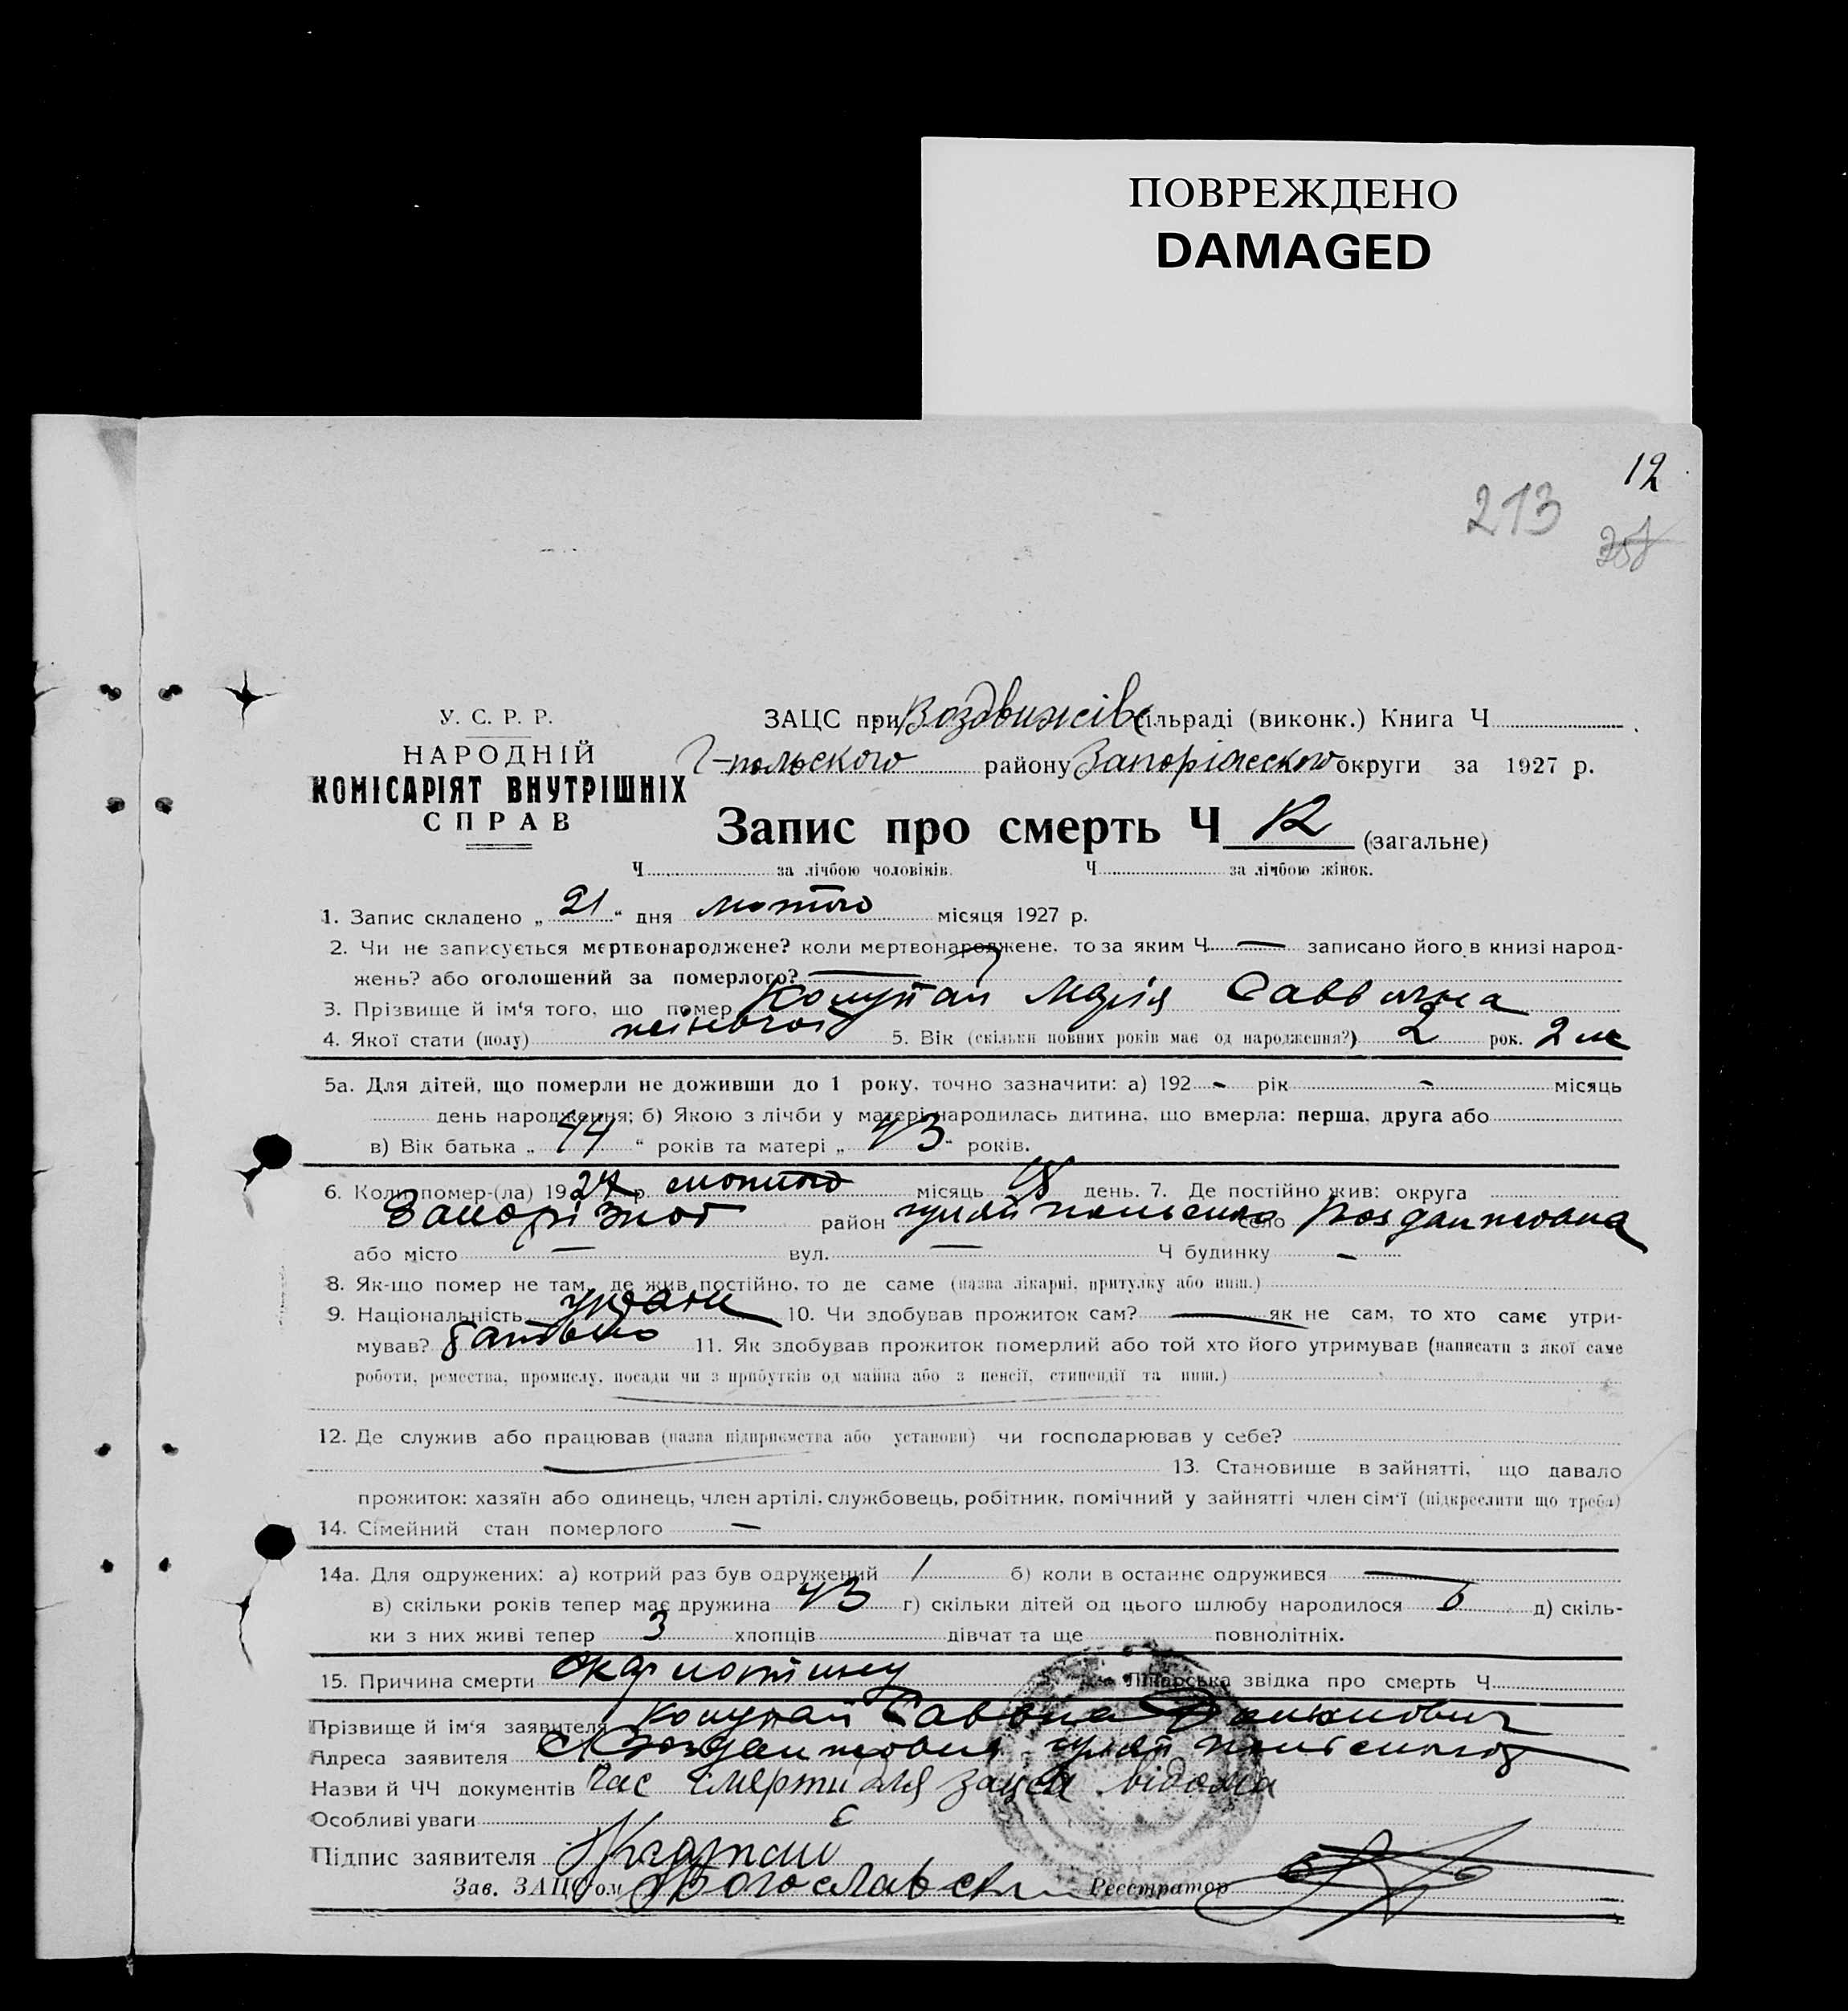 ПОВРЕЖДЕНО
DAMAGED
12
213
У. С. Р. Р.
НАРОДНІЙ
КОМІСАРІЯТ ВНУТРІШНІХ
СПРАВ
ЗАЦС при Воздвижівс сільраді (виконк.) Книга Ч
Г-польского району Запоріжеского округи за 1927 р.
Запис про смерть Ч 12 (загальне)
Ч за лічбою чоловіків. Ч за лічбою жінок.
1. Запис складено „ 21 “ дня лютого місяця 1927 р.
2. Чи не записується мертвонароджене? коли мертвонароджене, то за яким Ч — записано його в книзі народ-
жень? або оголошений за померлого? —
3. Прізвище й ім'я того, що помер Марія Саввична
4. Якої стати (полу) жіночої 5. Вік (скільки повних років має од народження?) 2 рок. 2 м
5а. Для дітей, що померли не доживши до 1 року, точно зазначити: а) 192 - рік - місяць
день народження; б) Якою з лічби у матері народилась дитина, що вмерла: перша, друга або
в) Вік батька „ 44 “ років та матері „ 43 “ років.
6. Коли помер-(ла) 1927 р. лютого місяць 18 день. 7. Де постійно жив: округа
Запорізког район гуляй польского село
або місто — вул. — Ч будинку -
8. Як-що помер не там, де жив постійно, то де саме (назва лікарні, притулку або инш.)
9. Національність 10. Чи здобував прожиток сам? — як не сам, то хто саме утри-
мував? батько 11. Як здобував прожиток померлий або той хто його утримував (написати з якої саме
роботи, ремества, промислу, посади чи з прибутків од майна або з пенсії, стипендії та инш.)
12. Де служив або працював (назва підприємства або установи) чи господарював у себе?
13. Становище в зайнятті, що давало
прожиток: хазяїн або одинець, член артілі, службовець, робітник, помічний у зайнятті член сім'ї (підкреслити що треба)
14. Сімейний стан померлого —
14а. Для одружених: а) котрий раз був одружений 1 б) коли в останнє одружився —
в) скільки років тепер має дружина 43 г) скільки дітей од цього шлюбу народилося 6 д) скіль-
ки з них живі тепер 3 хлопців дівчат та ще повнолітніх.
15. Причина смерти Лікарська звідка про смерть Ч
Прізвище й ім'я заявителя
Адреса заявителя гуляй
Назви й ЧЧ документів Час смерти для зацса відома
Особливі уваги є
Підпис заявителя
Зав. ЗАЦС'ом Реєстратор